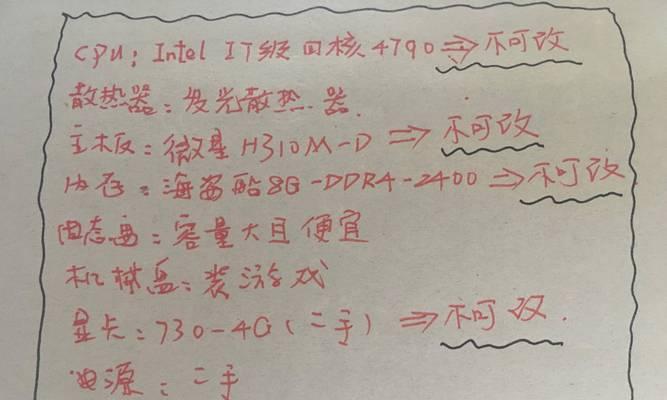 CPU: Intel I7级四核4790⇒不可改
散热器:发光散热器.
主板:微星H310M-D⇒不可改
内存:海盗船8G-DDR4-2400⇒不可改
固态盘:容量大且便宜
机械盘:装游戏
显卡:730-4G(二手)⇒不可改.
电源:二手